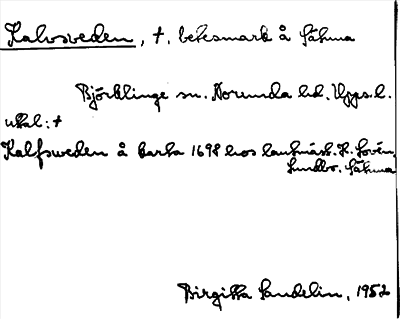 Kalvsveden, †. betesmark å Sätuna
Björklinge sn. Norunda hd. Upps. l.
uttal: †
Kalfsweden å karta 1698 hos lantmät. H. Lovén,
Lundbo, Sätuna
Birgitta Sandelin, 1952